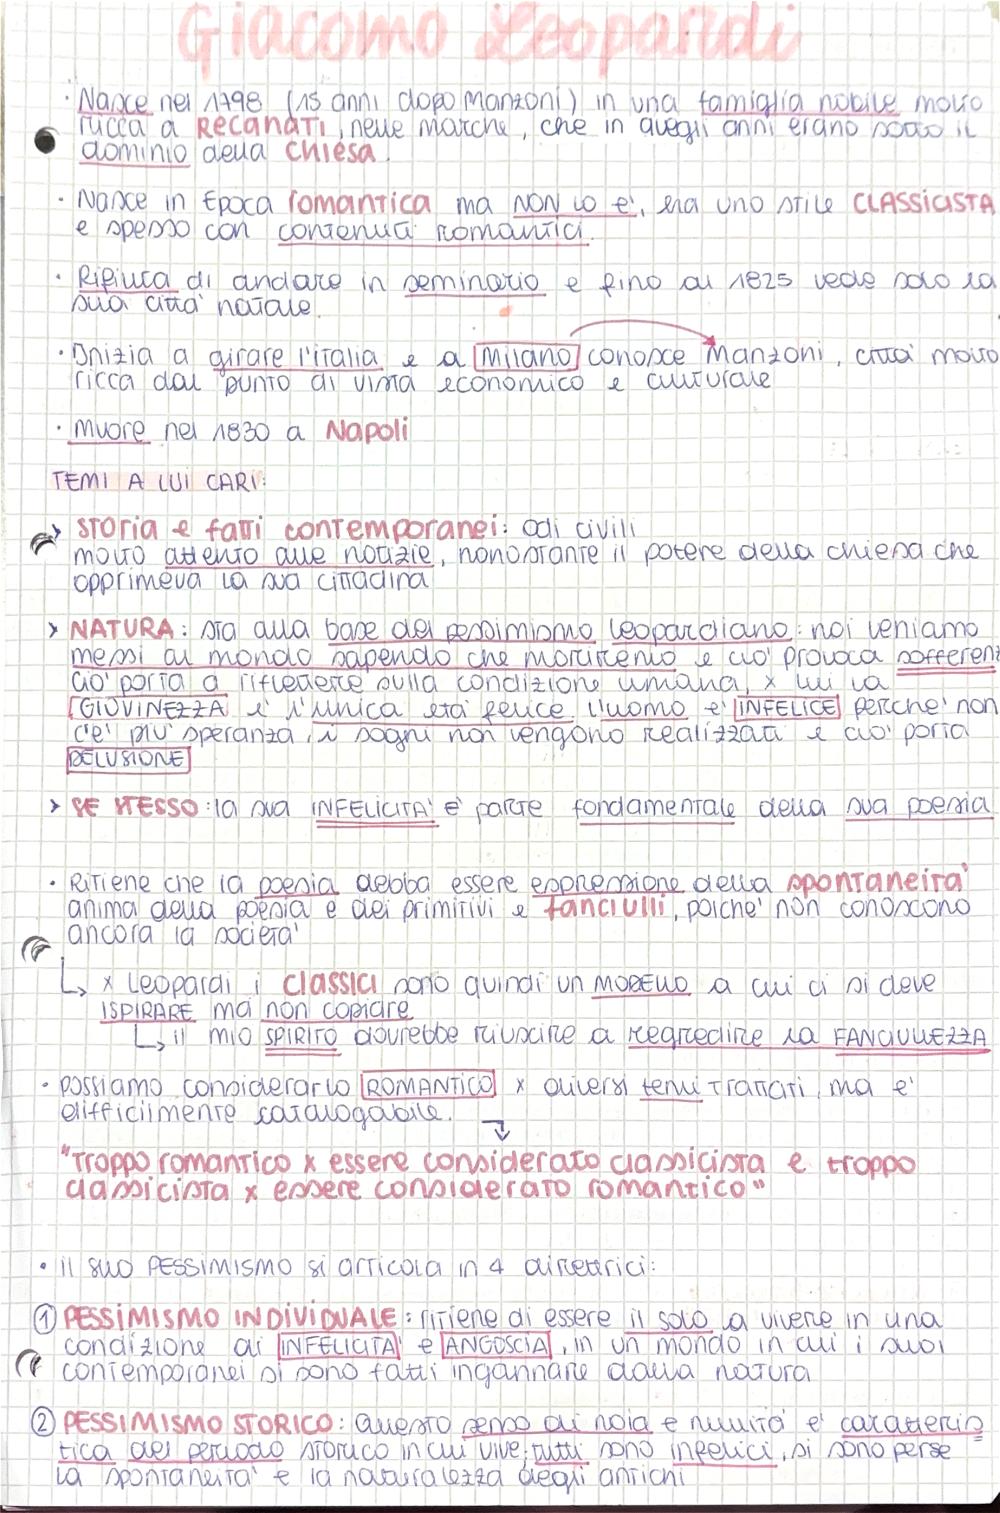 Giacomo Leopardi
· Nasce nel 1798 (15 anni dopo Manzoni) in una famiglia nobile molto
ricca a RECANATI, nelle marche, che in quegli anni erano sotto il
dominio della chiesa.
· Nasce in Epoca romantica ma NON LO E', era uno stile CLASSICISTA
e spesso con contenuti romantici.
· Rifiuta di andare in seminario e fino al 1825 vede solo la
sua città natale.
· Inizia a girare l'italia e a Milano conosce Manzoni, città molto
ricca dal punto di vista economico e culturale
· muore nel 1830 a Napoli
TEMI A LUI CARI:
> STORIA e fatti contemporanei: odi civili
molto attento alle notizie, nonostante il potere della chiesa che
opprimeva la sua cittadina
> NATURA: sta alla base del pessimismo leopardiano: noi veniamo
messi al mondo sapendo che moriremo e ciò provoca sofferenz
ciò porta a riflettere sulla condizione umana, x lui la
GIOVINEZZA è l'unica età felice, l'uomo è INFELICE perchè non
c'è più speranza, i sogni non vengono realizzati e ciò porta
DELUSIONE
> SE STESSO: la sua INFELICITA' è parte fondamentale della sua poesia
· Ritiene che la poesia debba essere espressione della spontaneità
anima della poesia e dei primitivi e fanciulli, poichè non conoscono
ancora la società
↳ x Leopardi i classici sono quindi un MODELLO a cui ci si deve
ISPIRARE ma non copiare
↳ il mio SPIRITO dovrebbe riuscire a regredire la FANCIULLEZZA
· possiamo considerarlo ROMANTICO x diversi temi trattati, ma è
difficilmente catalogabile.
"troppo romantico x essere considerato classicista e troppo
classicista x essere considerato romantico"
· il suo PESSIMISMO si articola in 4 direttrici:
① PESSIMISMO INDIVIDUALE: ritiene di essere il solo a vivere in una
condizione di INFELICITA' e ANGOSCIA, in un mondo in cui i suoi
contemporanei si sono fatti ingannare dalla natura
② PESSIMISMO STORICO: questo senso di noia e nullità è caratteris
tica del periodo storico in cui vive, tutti sono infelici, si sono perse
la spontaneità e la naturalezza degli antichi